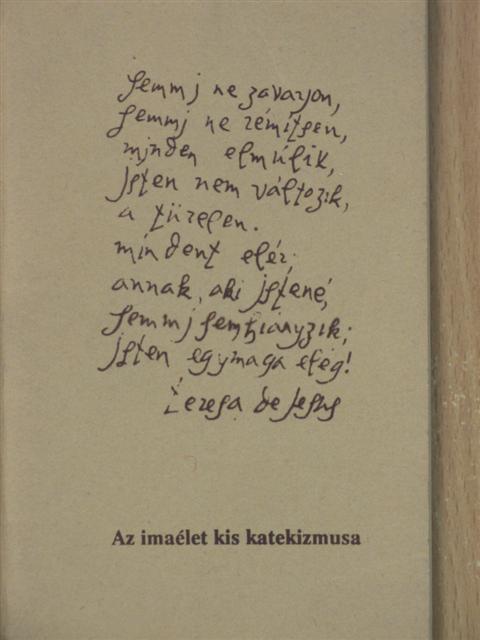 Semmi ne zavarjon,
Semmi ne rémítsen,
minden elmúlik,
Isten nem változik,
a türelem.
mindent elér;
annak, aki Istené,
Semmi sem hiányzik;
Isten egymaga elég!
Teresa de Jesus
Az imaélet kis katekizmusa